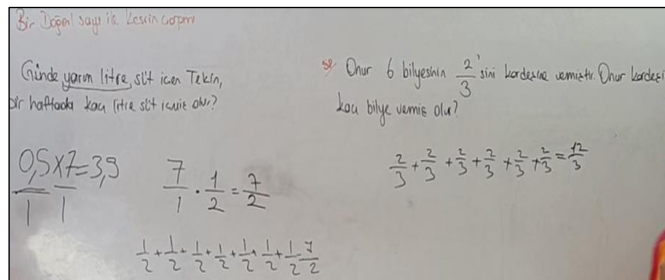 Bir Doğal sayı ile Kesrin Çarpımı
Günde yarım litre süt içen Tekin,
bir haftada kaç litre süt içmiş olur?
0,5x7=3,5
1 1
7/1 . 1/2 = 7/2
1/2 + 1/2 + 1/2 + 1/2 + 1/2 + 1/2 + 1/2 7/2
Onur 6 bilyesinin 2/3'sini kardeşine vermiştir. Onur kardeşi
kaç bilye vermiş olur?
2/3 + 2/3 + 2/3 + 2/3 + 2/3 + 2/3 = 12/3